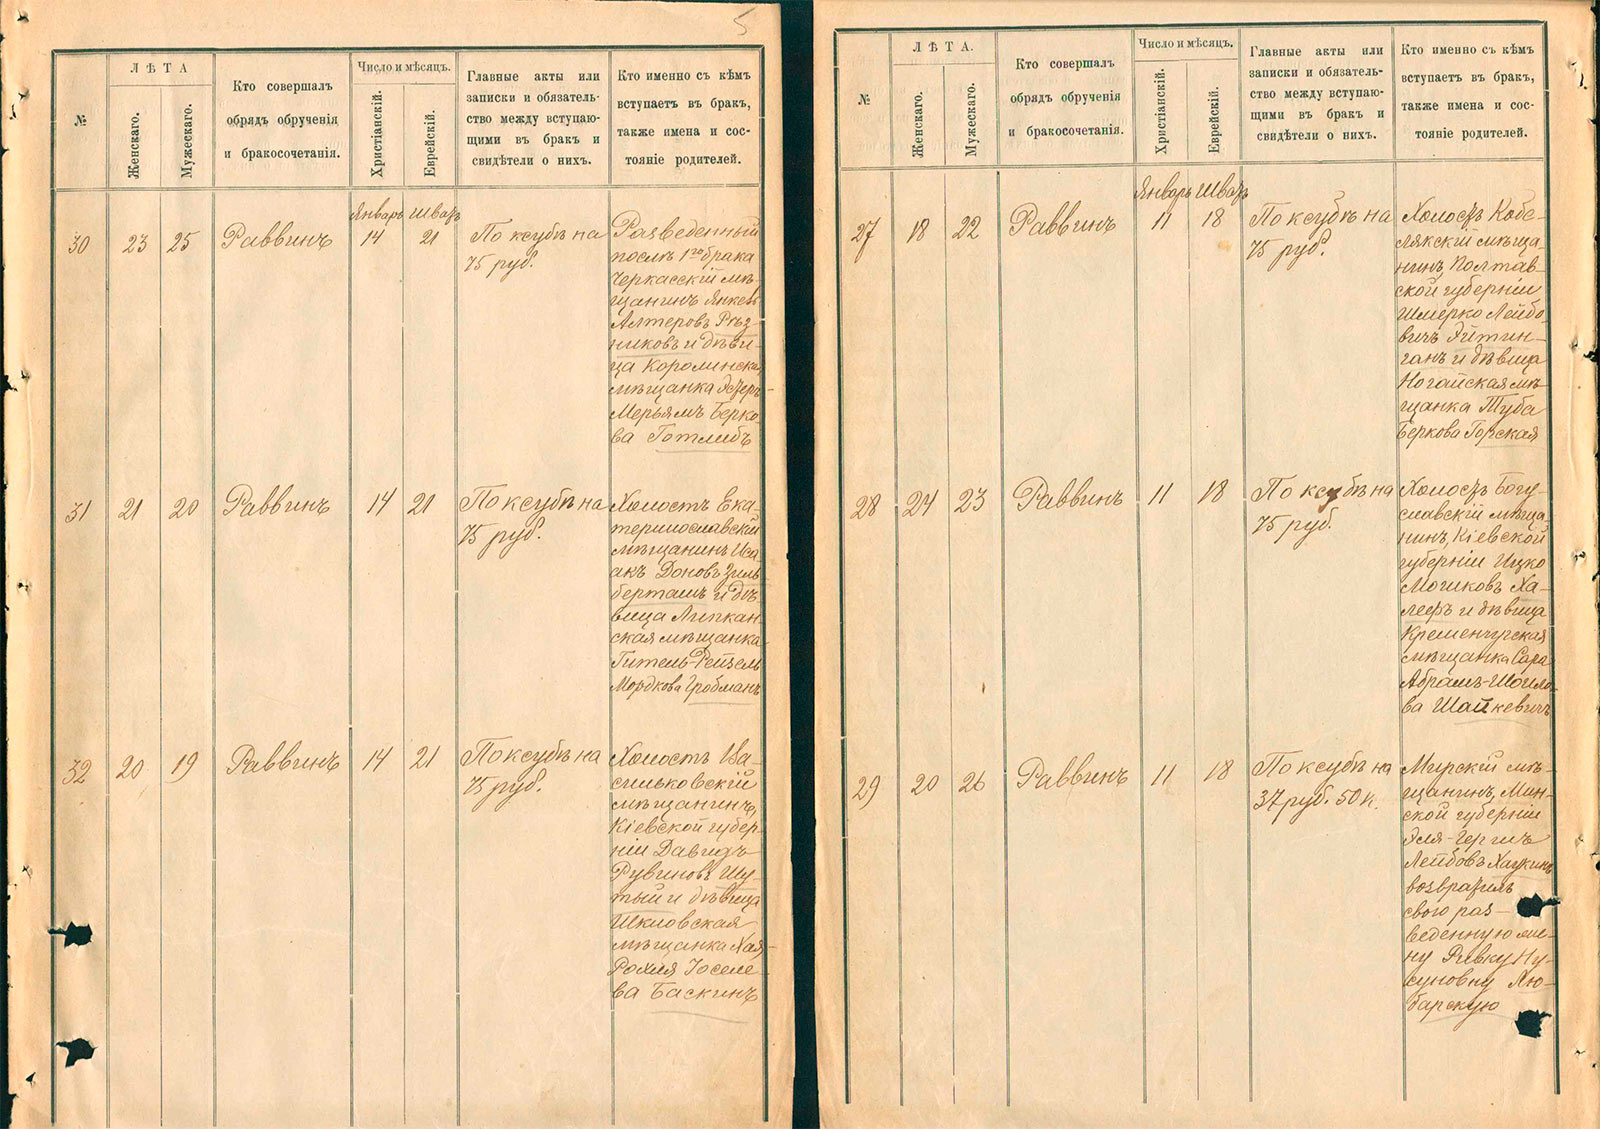 5
№
ЛѢТА
Женскаго.
Мужескаго.
Кто совершалъ
обрядъ обрученія
и бракосочетанія.
Число и мѣсяцъ.
Христіанскій.
Еврейскій.
Главные акты или
записки и обязатель-
ство между вступаю-
щими въ бракъ и
свидѣтели о нихъ.
Кто именно съ кѣмъ
вступаетъ въ бракъ,
также имена и сос-
тояніе родителей.
Январь Шватъ
30 23 25 Раввинъ 14 21
По ксубѣ на
75 руб.
Разведенный
послѣ 1го брака
Черкасскій мѣ-
щанинъ Янкель
Алтеровъ Рѣз-
никовъ и дѣви-
ца Королинская
мѣщанка Эстеръ-
Мерьямъ Берко-
ва Готлибъ
31 21 20 Раввинъ 14 21
По ксубѣ на
75 руб.
Холостъ Ека-
теринославскій
мѣщанинъ Иса-
акъ Доновъ Зиль-
берташъ и дѣ-
вица Липкан-
ская мѣщанка
Гитель-Рейзель
Мордкова Гробманъ
32 20 19 Раввинъ 14 21
По ксубѣ на
75 руб.
Холостъ Ва-
сильковскій
мѣщанинъ,
Кіевской губер-
ніи Давидъ
Рувиновъ Шу-
тый и дѣвица
Шкловская
мѣщанка Хая-
Рохля Іоселе-
ва Баскинъ
№
ЛѢТА.
Женскаго.
Мужескаго.
Кто совершалъ
обрядъ обрученія
и бракосочетанія.
Число и мѣсяцъ.
Христіанскій.
Еврейскій.
Главные акты или
записки и обязатель-
ство между вступаю-
щими въ бракъ и
свидѣтели о нихъ.
Кто именно съ кѣмъ
вступаетъ въ бракъ,
также имена и сос-
тояніе родителей.
Январь Шватъ
27 18 22 Раввинъ 11 18
По ксубѣ на
75 руб.
Холостъ Кобе-
лякскій мѣща-
нинъ, Полтав-
ской губерніи
Шмерко Лейбо-
вичъ Эйтин-
ганъ и дѣвица
Ногайская мѣ-
щанка Туба
Беркова Горская
28 24 23 Раввинъ 11 18
По ксубѣ на
75 руб.
Холостъ Богу-
славскій мѣща-
нинъ, Кіевской
губерніи Ицко
Мошковъ Ха-
лефъ и дѣвица
Кременчугская
мѣщанка Сара
Абрамъ-Шоило-
ва Шайкевичъ
29 20 26 Раввинъ 11 18
По ксубѣ на
37 руб. 50 к.
Мирскій мѣ-
щанинъ, Мин-
ской губерніи
Эля-Герцъ
Лейбовъ Хаукинъ
возвратилъ
свою раз-
веденную же-
ну Ривку Ну-
суновну Лю-
барскую